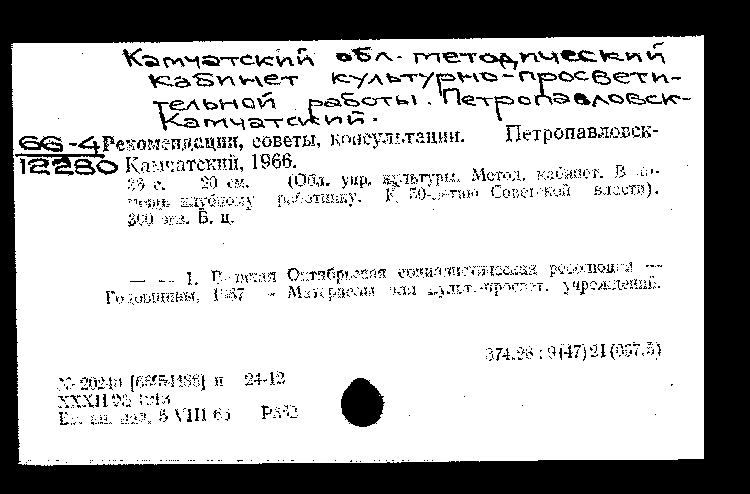 Камчатский обл. методический
кабинет культурно-просвети-
тельной работы. Петропавловск-
Камчатский.
66-4 Рекомендации, советы, консультации. Петропавловск-
12280 Камчатский, 1966.
с. 20 см. (Обл. упр. культуры. Метод. кабинет. В по-
мощь клубному работнику. К 50-летию Советской власти).
300 экз. Б. ц.
— — 1. Великая Октябрьская социалистическая революция —
Годовщины, 1967 — Материалы для культ.-просвет. учреждений.
374.28 : 9(47)21(067.5)
№ 20240 п 24-12
XXXII
VIII 66